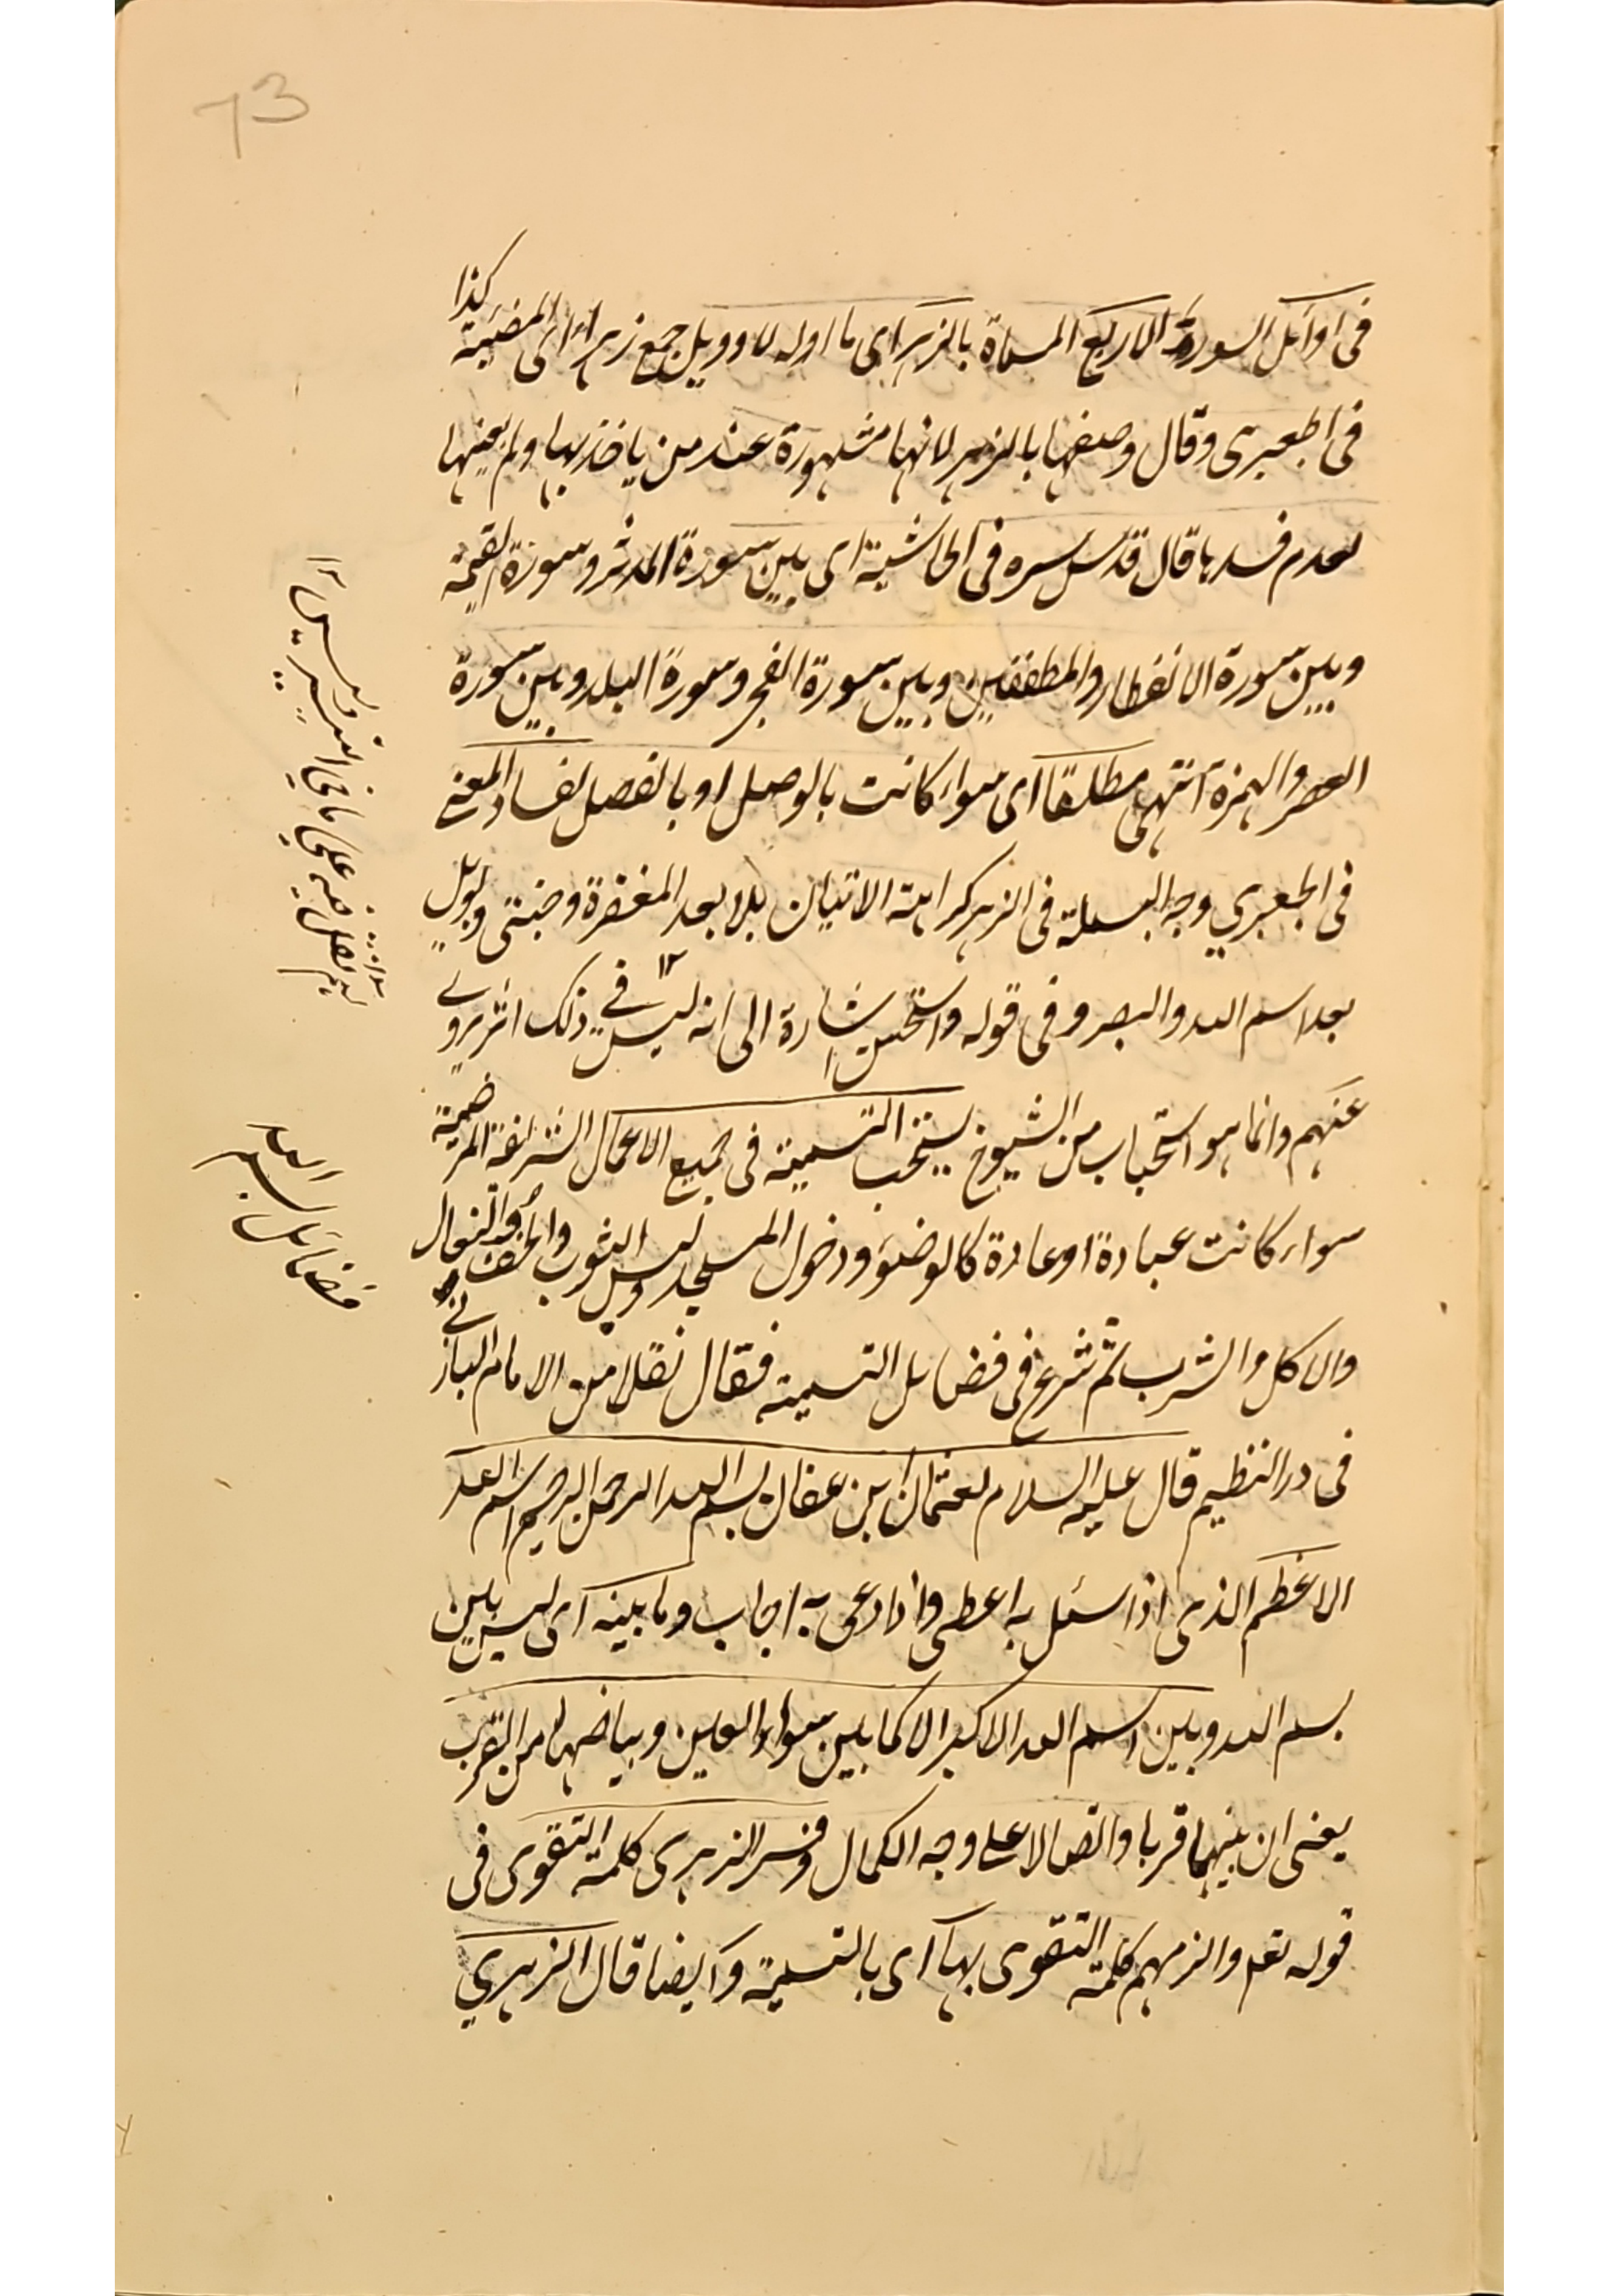 73
فى اوآئل السورة الاربع المسماة بالزهر اى ما اوله لا وويل جمع زهراء اى المضيئة كذا
فى الجعبرى وقال وصفها بالزهر لانها مشهورة عند من ياخذ بها ولم يعينها
لعدم فسدها قال قدس سره فى الحاشية اى بين سورة المدثر وسورة القيمة
وبين سورة الانفطار والمطففين وبين سورة الفجر وسورة البلد وبين سورة
العصر والهمزة انتهى مطلقا اى سواء كانت بالوصل او بالفصل لفساد المعنى
فى الجعبري وجه البسملة فى الزهر كراهة الاتيان بلا بعد المغفرة وجنتى وبويل
بعد اسم الله والبصر وفى قوله واستحسن اشارة الى انه ليس فى ذلك اثر يروى
عنهم وانما هو استحباب من الشيوخ يستحب التسمية فى جميع الاعمال الشرائفة المرضية
سواء كانت عبادة او عادة كالوضوء ودخول المسجد ولبس الثوب والخف والنعال
والاكل والشرب ثم شرع فى فضايل التسمية فقال نقلا من الامام اليافى
فى در النظيم قال عليه السلام لعثمان بن عفان بسم الله الرحمن الرحيم اسم الله
الاعظم الذى اذا سئل به اعطى واذا دعى به اجاب وما بينه اى ليس بين
بسم الله وبين اسم الله الاكبر الا كما بين سواد العين وبياضها من القرب
يعنى ان بينهما قربا واتصالا على وجه الكمال وفسر الزهرى كلمة التقوى فى
قوله تعـ والزمهم كلمة التقوى بها اى بالتسمية وايضا قال الزهري
فضائل بسم الله